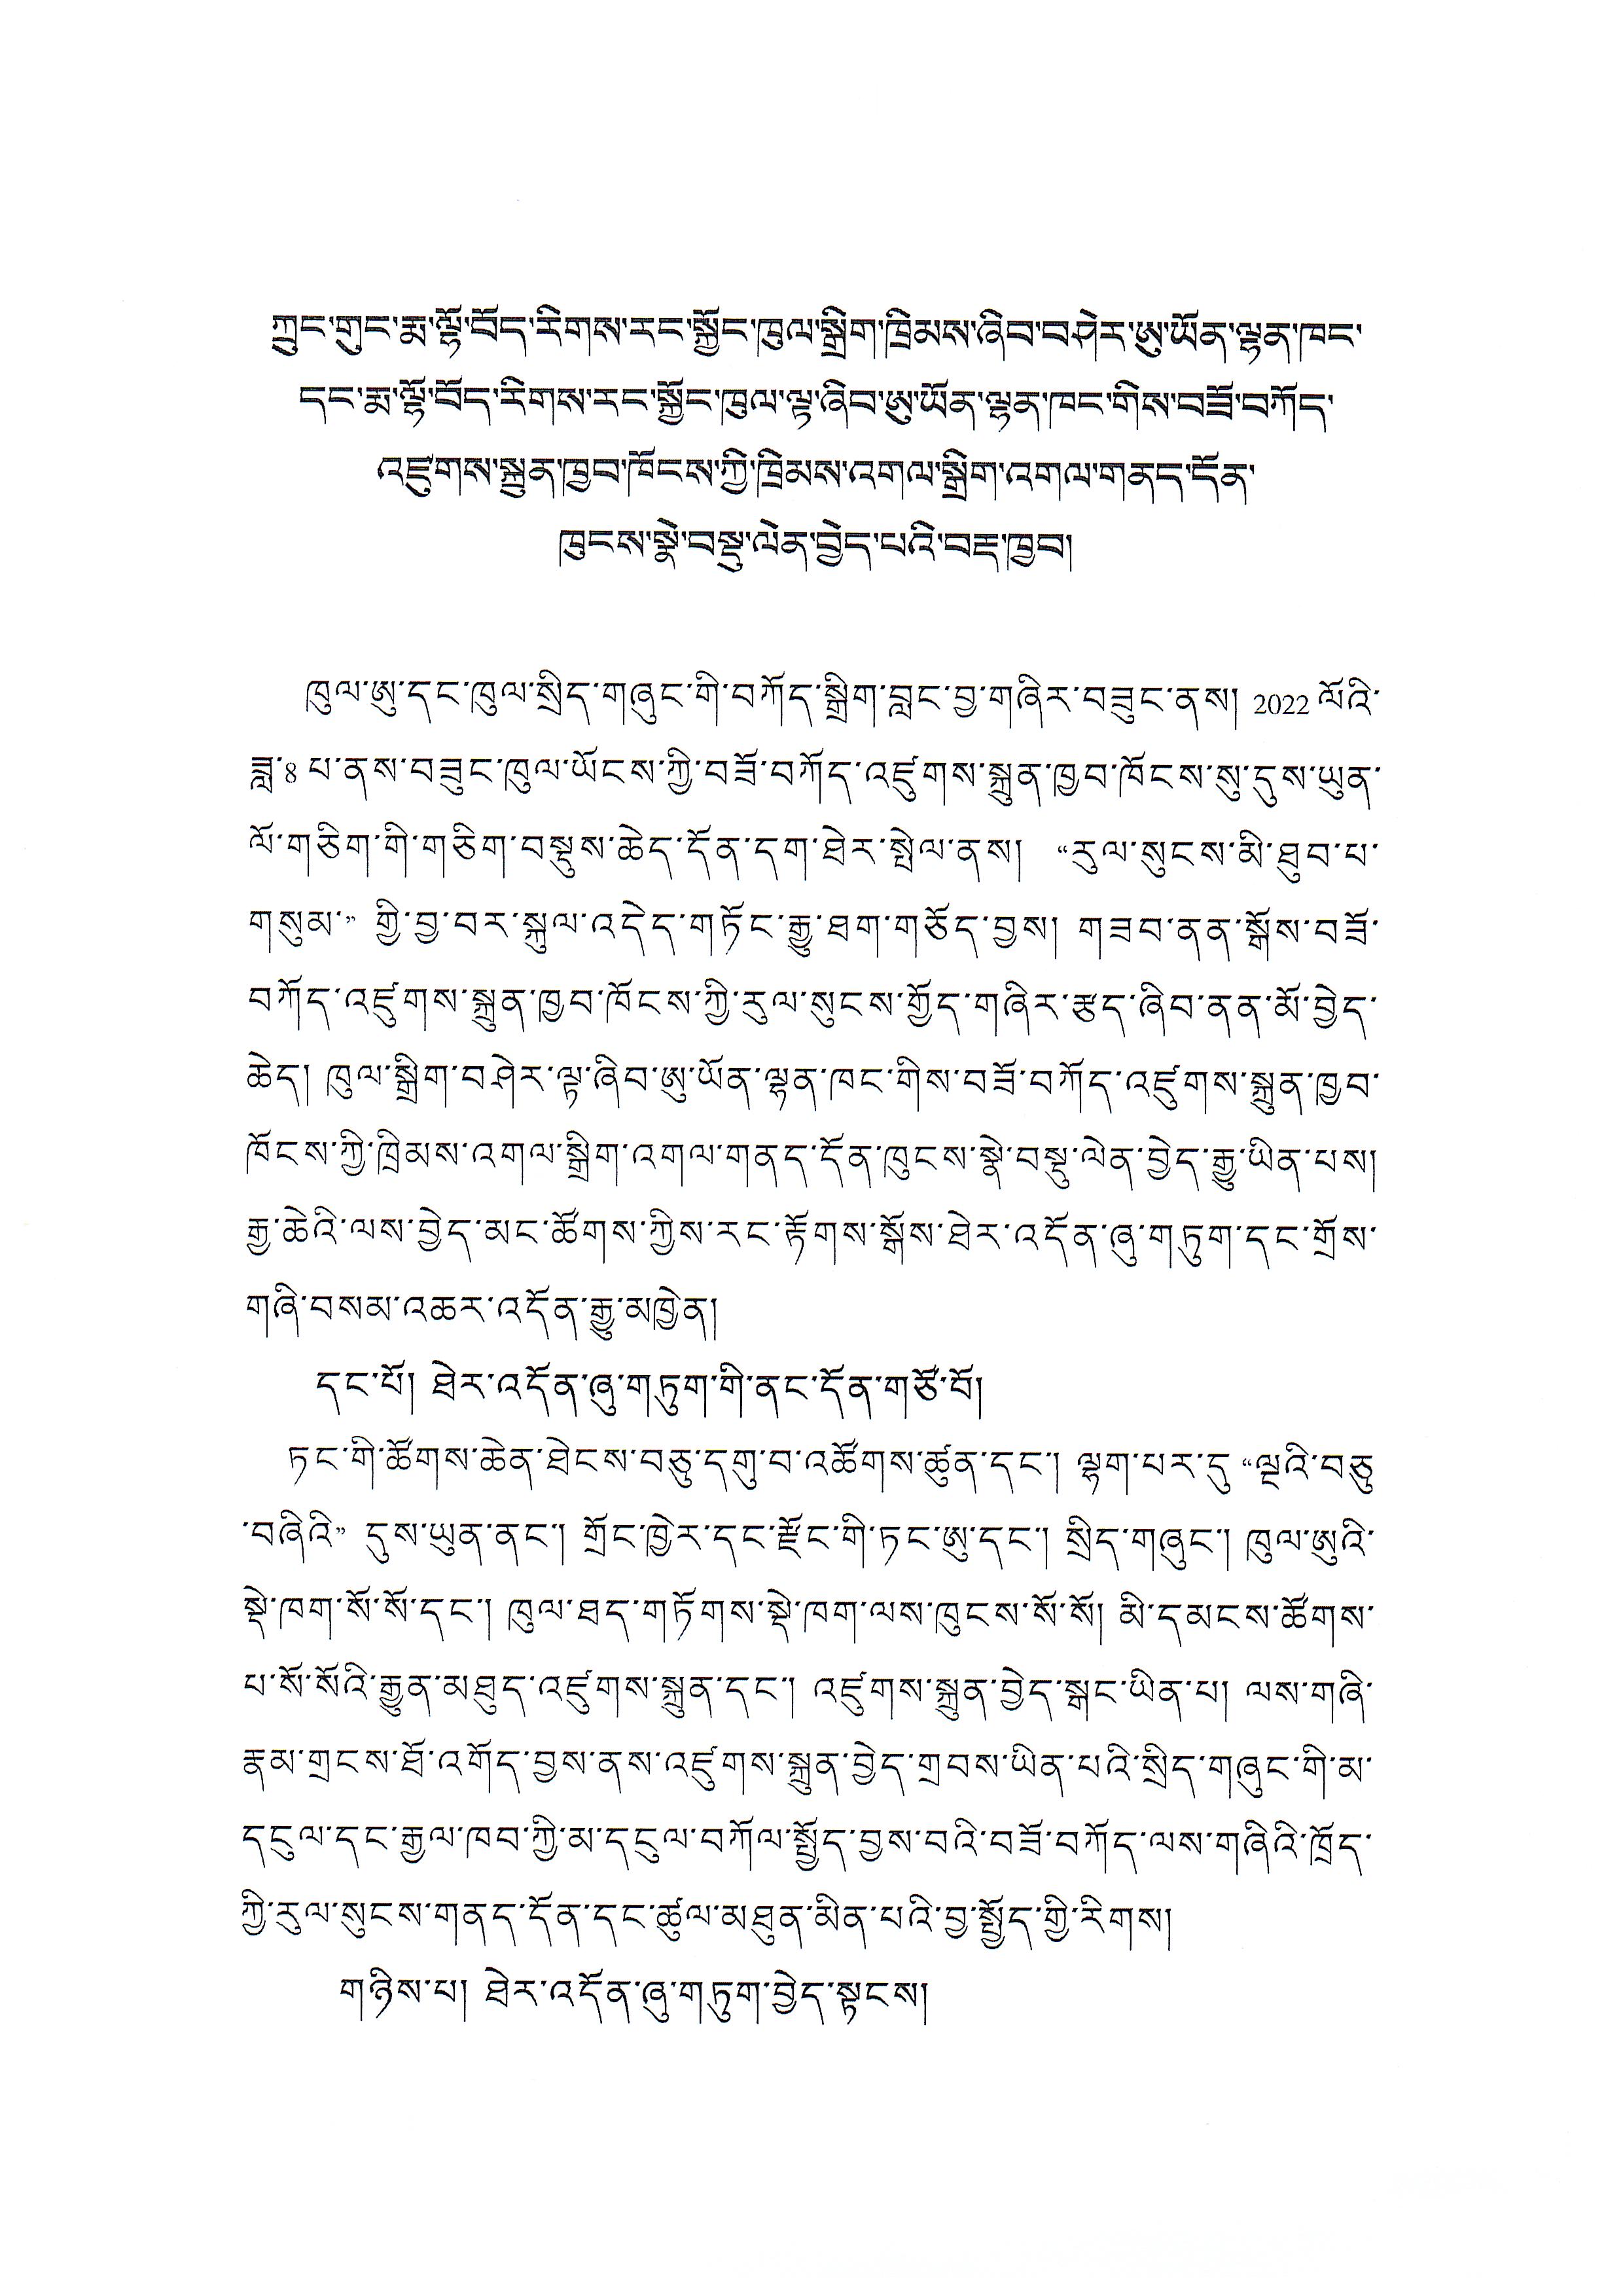 ཀྲུང་གུང་རྨ་ལྷོ་བོད་རིགས་རང་སྐྱོང་ཁུལ་སྒྲིག་ཁྲིམས་ཞིབ་བཤེར་ཨུ་ཡོན་ལྷན་ཁང་
དང་རྨ་ལྷོ་བོད་རིགས་རང་སྐྱོང་ཁུལ་ལྟ་ཞིབ་ཨུ་ཡོན་ལྷན་ཁང་གིས་བཟོ་བཀོད་
འཛུགས་སྐྲུན་ཁྱབ་ཁོངས་ཀྱི་ཁྲིམས་འགལ་སྒྲིག་འགལ་གནད་དོན་
ཁུངས་སྣེ་བསྡུ་ལེན་བྱེད་པའི་བརྡ་ཁྱབ།
ཁུལ་ཨུ་དང་ཁུལ་སྲིད་གཞུང་གི་བཀོད་སྒྲིག་བླང་བྱ་གཞིར་བཟུང་ནས། 2022 ལོའི་
ཟླ་8 པ་ནས་བཟུང་ཁུལ་ཡོངས་ཀྱི་བཟོ་བཀོད་འཛུགས་སྐྲུན་ཁྱབ་ཁོངས་སུ་དུས་ཡུན་
ལོ་གཅིག་གི་གཅིག་བསྡུས་ཆེད་དོན་དག་ཐེར་སྤེལ་ནས། “རུལ་སུངས་མི་ཐུབ་པ་
གསུམ་” གྱི་བྱ་བར་སྐུལ་འདེད་གཏོང་རྒྱུ་ཐག་གཅོད་བྱས། གཟབ་ནན་སྒོས་བཟོ་
བཀོད་འཛུགས་སྐྲུན་ཁྱབ་ཁོངས་ཀྱི་རུལ་སུངས་གྱོད་གཞིར་རྩད་ཞིབ་ནན་མོ་བྱེད་
ཆེད། ཁུལ་སྒྲིག་བཤེར་ལྟ་ཞིབ་ཨུ་ཡོན་ལྷན་ཁང་གིས་བཟོ་བཀོད་འཛུགས་སྐྲུན་ཁྱབ་
ཁོངས་ཀྱི་ཁྲིམས་འགལ་སྒྲིག་འགལ་གནད་དོན་ཁུངས་སྣེ་བསྡུ་ལེན་བྱེད་རྒྱུ་ཡིན་པས།
རྒྱ་ཆེའི་ལས་བྱེད་མང་ཚོགས་ཀྱིས་རང་རྟོགས་སྒོས་ཐེར་འདོན་ཞུ་གཏུག་དང་གྲོས་
གཞི་བསམ་འཆར་འདོན་རྒྱུ་མཁྱེན།
དང་པོ། ཐེར་འདོན་ཞུ་གཏུག་གི་ནང་དོན་གཙོ་བོ།
ཏང་གི་ཚོགས་ཆེན་ཐེངས་བཅུ་དགུ་བ་འཚོགས་ཚུན་དང་། ལྷག་པར་དུ “ལྔའི་བཅུ
་བཞིའི” དུས་ཡུན་ནང་། གྲོང་ཁྱེར་དང་རྫོང་གི་ཏང་ཨུ་དང་། སྲིད་གཞུང་། ཁུལ་ཨུའི་
སྡེ་ཁག་སོ་སོ་དང་། ཁུལ་ཐད་གཏོགས་སྡེ་ཁག་ལས་ཁུངས་སོ་སོ། མི་དམངས་ཚོགས་
པ་སོ་སོའི་རྒྱུན་མཐུད་འཛུགས་སྐྲུན་དང་། འཛུགས་སྐྲུན་བྱེད་སྒང་ཡིན་པ། ལས་གཞི་
རྣམ་གྲངས་ཐོ་འགོད་བྱས་ནས་འཛུགས་སྐྲུན་བྱེད་གྲབས་ཡིན་པའི་སྲིད་གཞུང་གི་མ་
དངུལ་དང་རྒྱལ་ཁབ་ཀྱི་མ་དངུལ་བཀོལ་སྤྱོད་བྱས་བའི་བཟོ་བཀོད་ལས་གཞིའི་ཁྲོད་
ཀྱི་རུལ་སུངས་གནད་དོན་དང་ཚུལ་མཐུན་མིན་པའི་བྱ་སྤྱོད་ཀྱི་རིགས།
གཉིས་པ། ཐེར་འདོན་ཞུ་གཏུག་བྱེད་སྟངས།